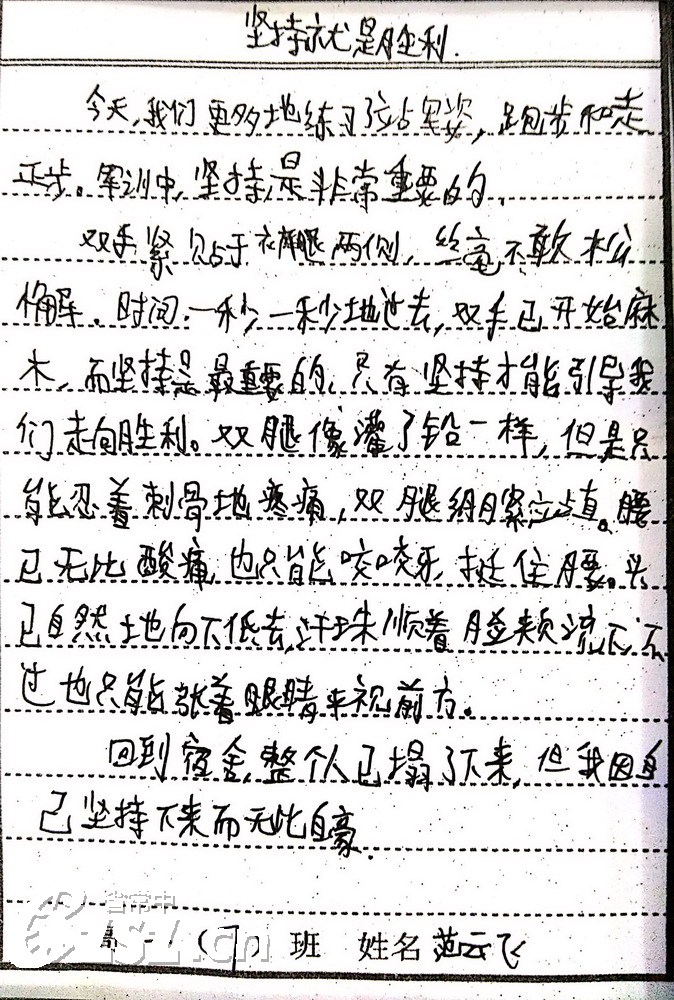 坚持就是胜利.
今天,我们更多地练习了站军姿,跑步和走
正步。军训中,坚持是非常重要的。
双手紧贴于裤腿两侧,丝毫不敢松
懈。时间,一秒一秒地过去,双手已开始麻
木,而坚持是最重要的,只有坚持才能引导我
们走向胜利。双腿像灌了铅一样,但是只
能忍着刺骨地疼痛,双腿绷紧站直。腰
已无比酸痛,也只能咬咬牙,挺住腰。头
已自然地向下低去,汗珠顺着脸颊流下,不
过也只能张着眼睛平视前方。
回到宿舍,整个人已塌了下来,但我因自
己坚持下来而无比自豪.
省常中
SZ.cn
高一(7)班 姓名 范云飞